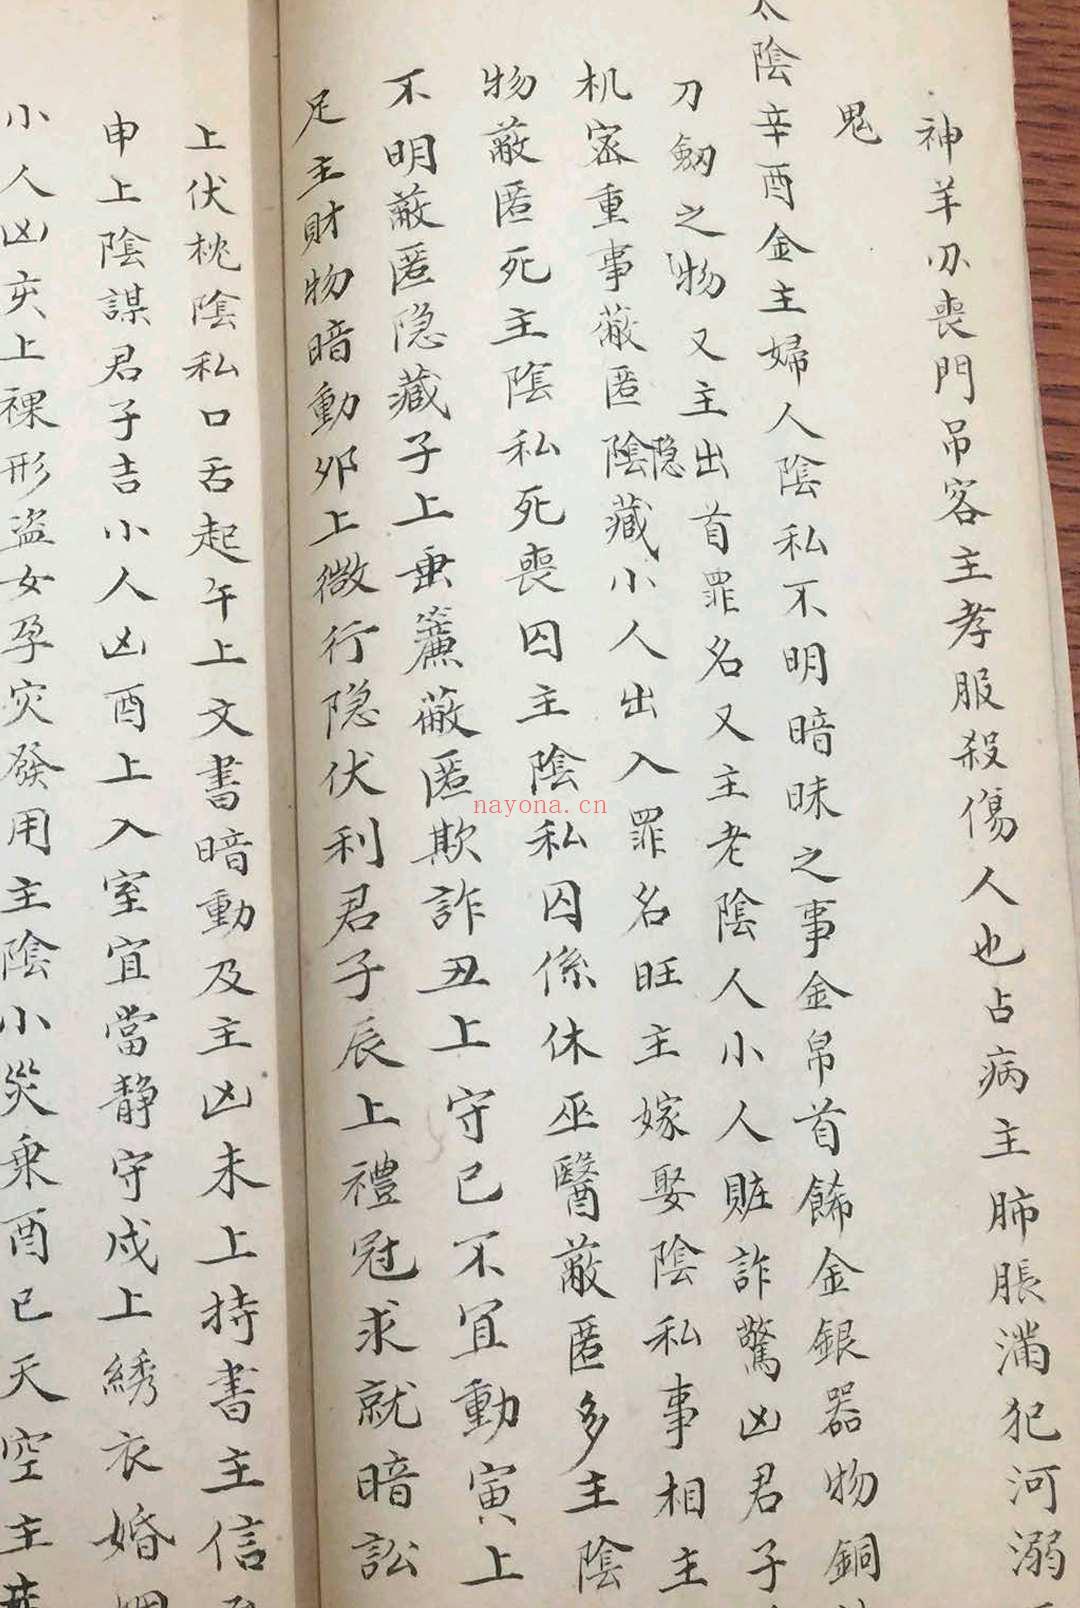 神羊刃喪門吊客主孝服殺傷人也占病主肺脹滿犯河溺
鬼
太陰辛酉金主婦人陰私不明暗昧之事金帛首餙金銀器物銅
刀劒之物又主出首罪名又主老陰人小人賍詐驚凶君子
机宻重事蔽匿陰隐藏小人出入罪名旺主嫁娶陰私事相主
物蔽匿死主陰私死喪囚主陰私囚係休巫醫蔽匿多主陰
不明蔽匿隐藏子上垂簾蔽匿欺詐丑上守己不宜動寅上
足主財物暗動夘上微行隐伏利君子辰上禮冠求就暗訟
上伏枕陰私口舌起午上文書暗動及主凶未上持書主信
申上陰謀君子吉小人凶酉上入室宜當静守戍上綉衣婚姻
小人凶亥上裸形盗女孕灾發用主陰小災乗酉已天空主
nayona.cn